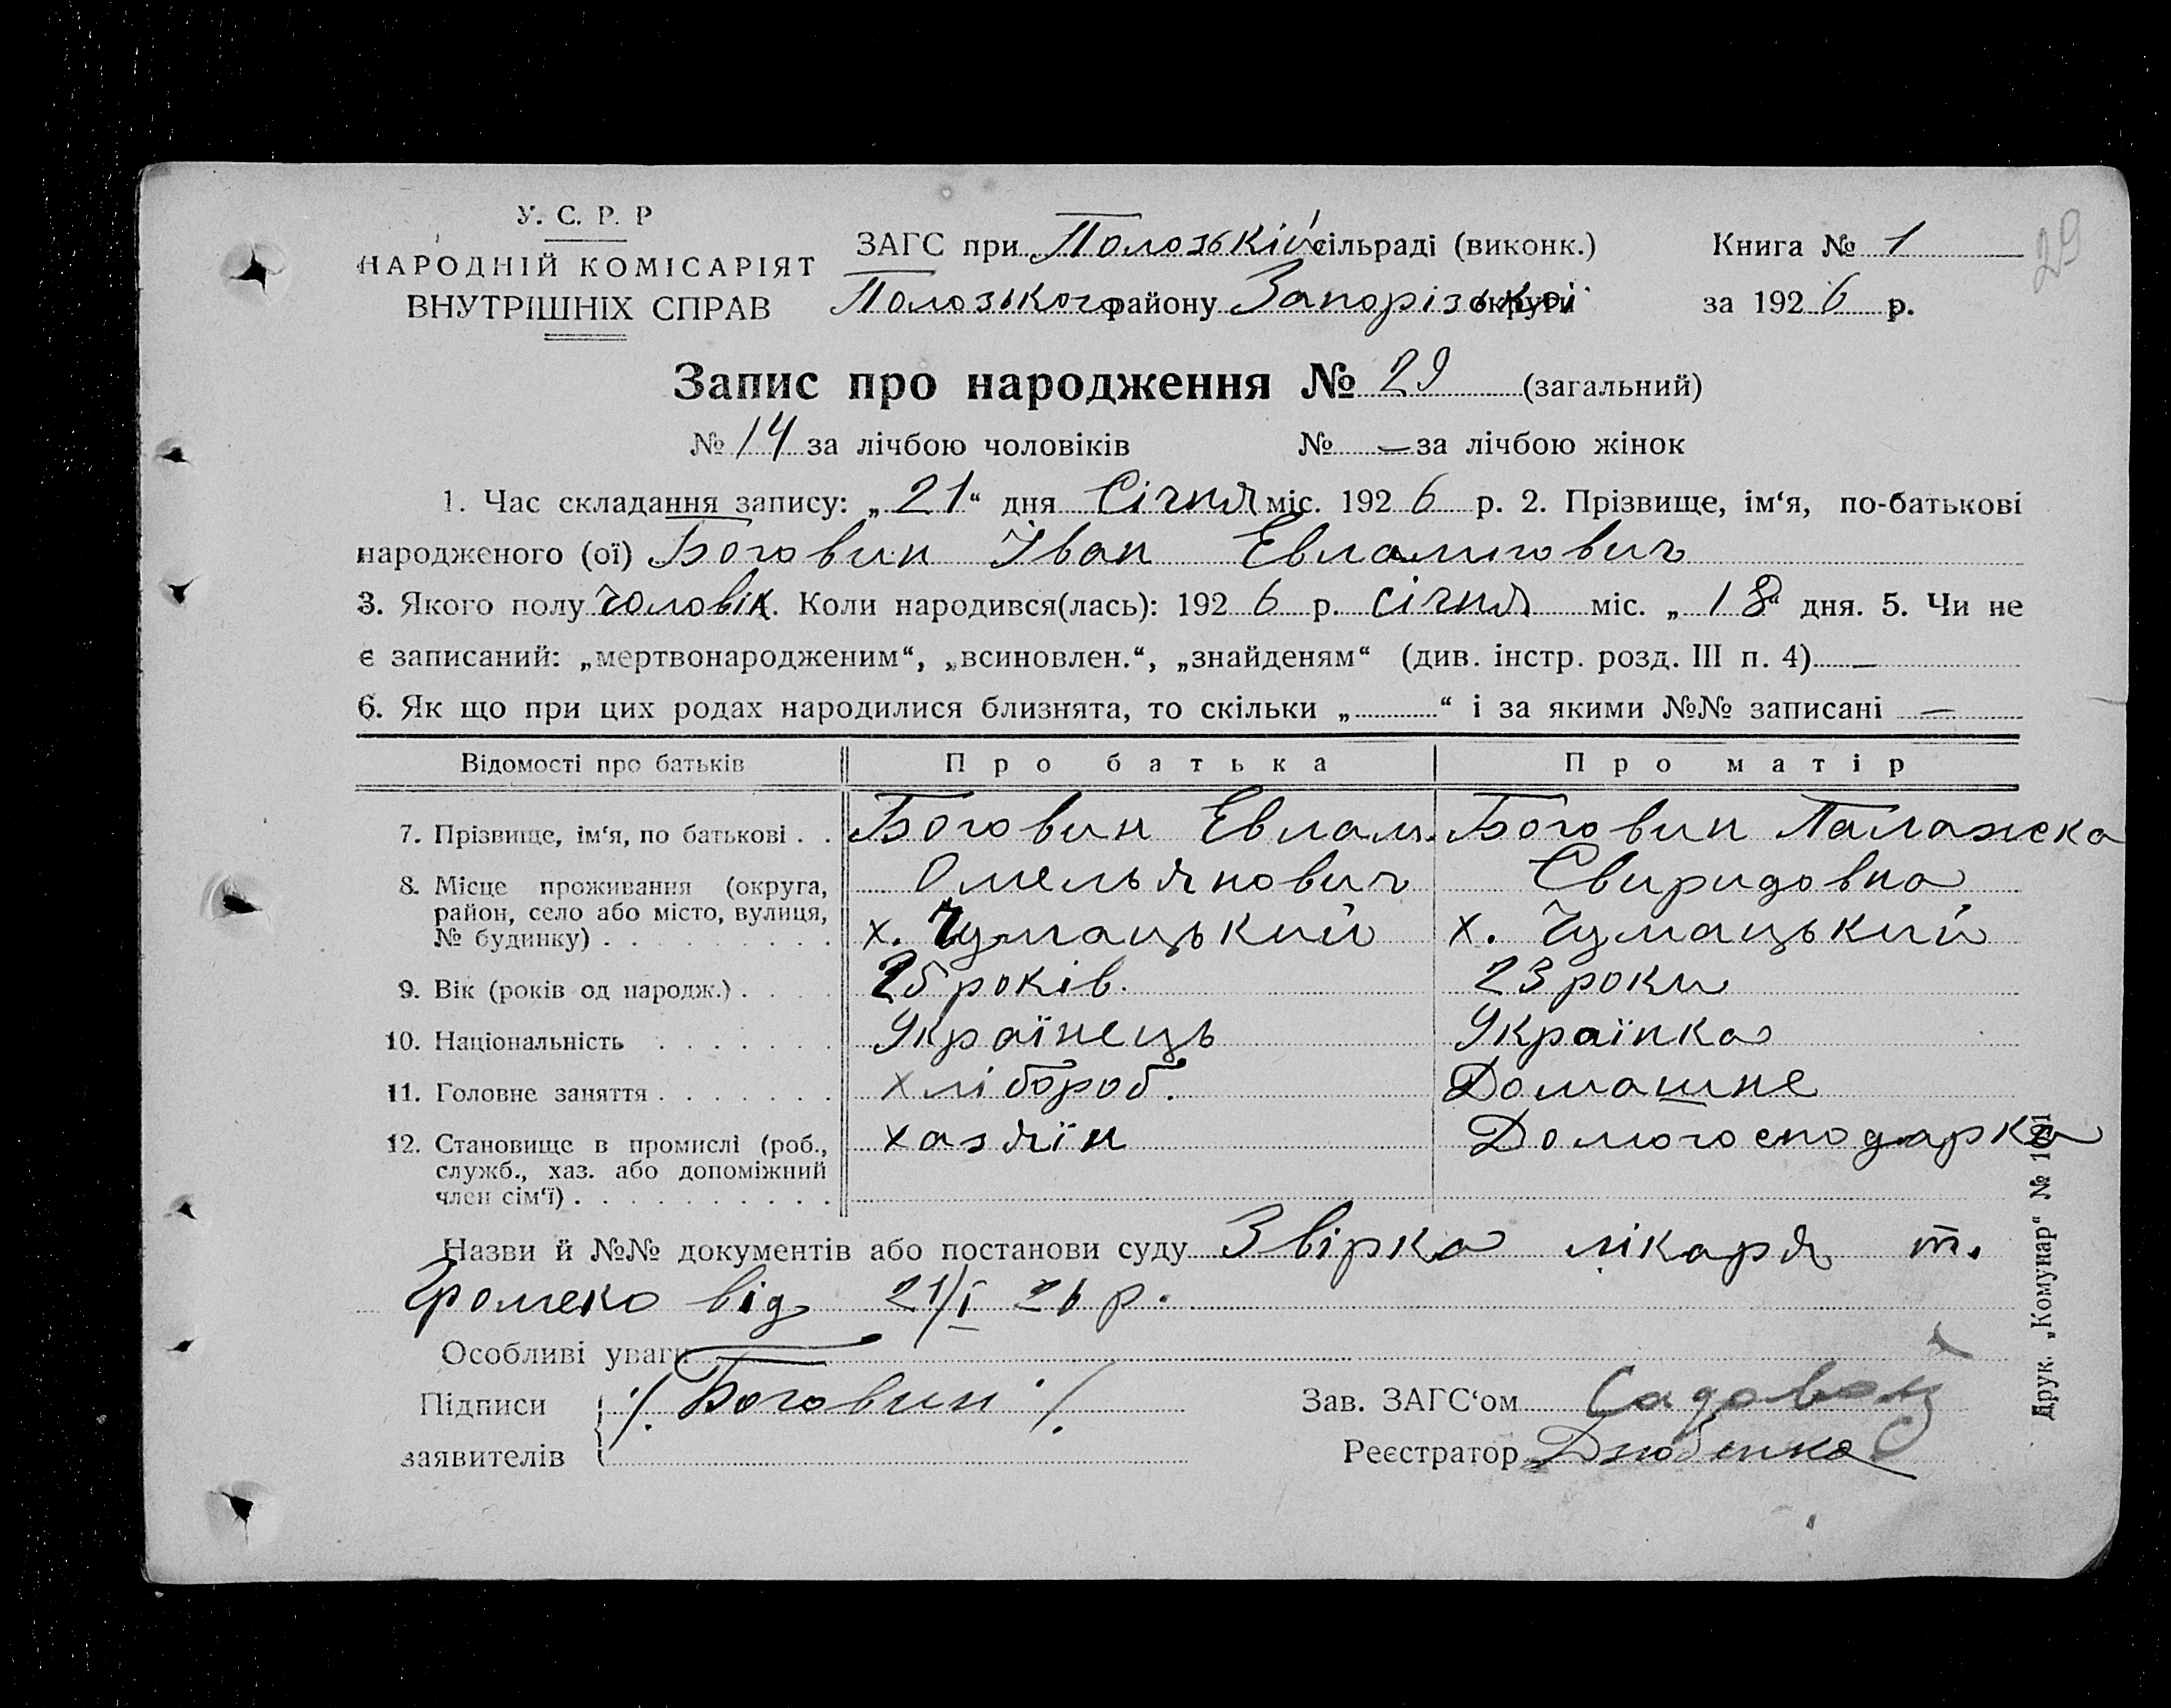 29
У. С. Р. Р
НАРОДНІЙ КОМІСАРІЯТ
ВНУТРІШНІХ СПРАВ
ЗАГС при Пологській сільраді (виконк.) Книга № 1
Пологського району Запорізської округи за 1926 р.
Запис про народження № 29 (загальний)
№ 14 за лічбою чоловіків № — за лічбою жінок
1. Час складання запису: „21“ дня Січня міс. 1926 р. 2. Прізвище, ім‘я, по-батькові
народженого (ої) Боговин Іван Евлампович
3. Якого полу чоловік. Коли народився(лась): 1926 р. січня міс. „18“ дня. 5. Чи не
є записаний: „мертвонародженим“, „всиновлен.“, „знайденям“ (див. інстр. розд. III п. 4) —
6. Як що при цих родах народилися близнята, то скільки „ “ і за якими №№ записані —
Відомості про батьків Про батька Про матір
7. Прізвище, ім‘я, по батькові . . Боговин Евлам. Боговин Палажка
Омельянович Свиридовна
8. Місце проживання (округа,
район, село або місто, вулиця,
№ будинку) . х. Чумацький х. Чумацький
9. Вік (років од народж.) . 25 років. 23 роки
10. Національність Українець Українка
11. Головне заняття . хлібороб. Домашне
12. Становище в промислі (роб., хазяїн Домогосподарка
служб., хаз. або допоміжний
член сім‘ї) .
Назви й №№ документів або постанови суду Звірка лікаря т.
Громеко від 21/I 26 р.
Особливі уваги
Підписи /. Боговин ./ Зав. ЗАГС‘ом
заявителів Реєстратор Дзюбенко
Друк. „Комунар“ №